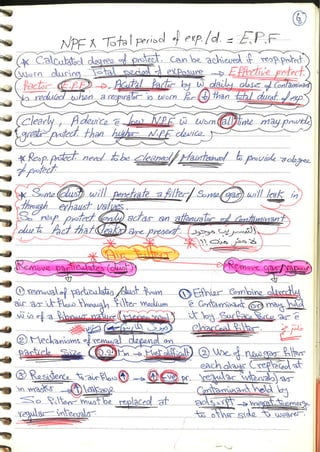 6
NPF x Total period of exp./d. = E.P.F
* Calculated degree of protect. can be achieved if resp protect
worn during Total period of exposure → Effective protect.
Factor (E.P.F) → Actual Factor by w daily dose of Contaminant
is reduced when a respirator is worn for than total durat. of exp.
Clearly, A device low NPF w worn all time may provide
greater protect than higher N.P.F device.
* Resp protect need to be cleaned / Maintained to provide a degree
of protect.
* Some dust will penetrate a filter / Some gas will leak in
through exhaust valves.
So resp protect only act as an attenuator of Contaminant
due to fact that leaks are present. التسريب موجود
Air Filter
Remove particulates (dust)
Remove gas/vapour
① removal of particulates / dust from
air as it flow through Filter medium
w is of a fibrous nature
② Mechanisms of removal depend on
particle size → Most difficult
③ Resistance to air flow ↑ → ↑ -ve pr.
in mask → ↑ leakage
So Filter must be replaced at
regular intervals
① Either Combine directly
Contaminant or may hold
it by Surface force as
charcoal filter
② Use of new gas filter
each day (replaced at
regular intervals) as
Contaminant held by
adsorpt → migrat to emerge
to other side to wearer.